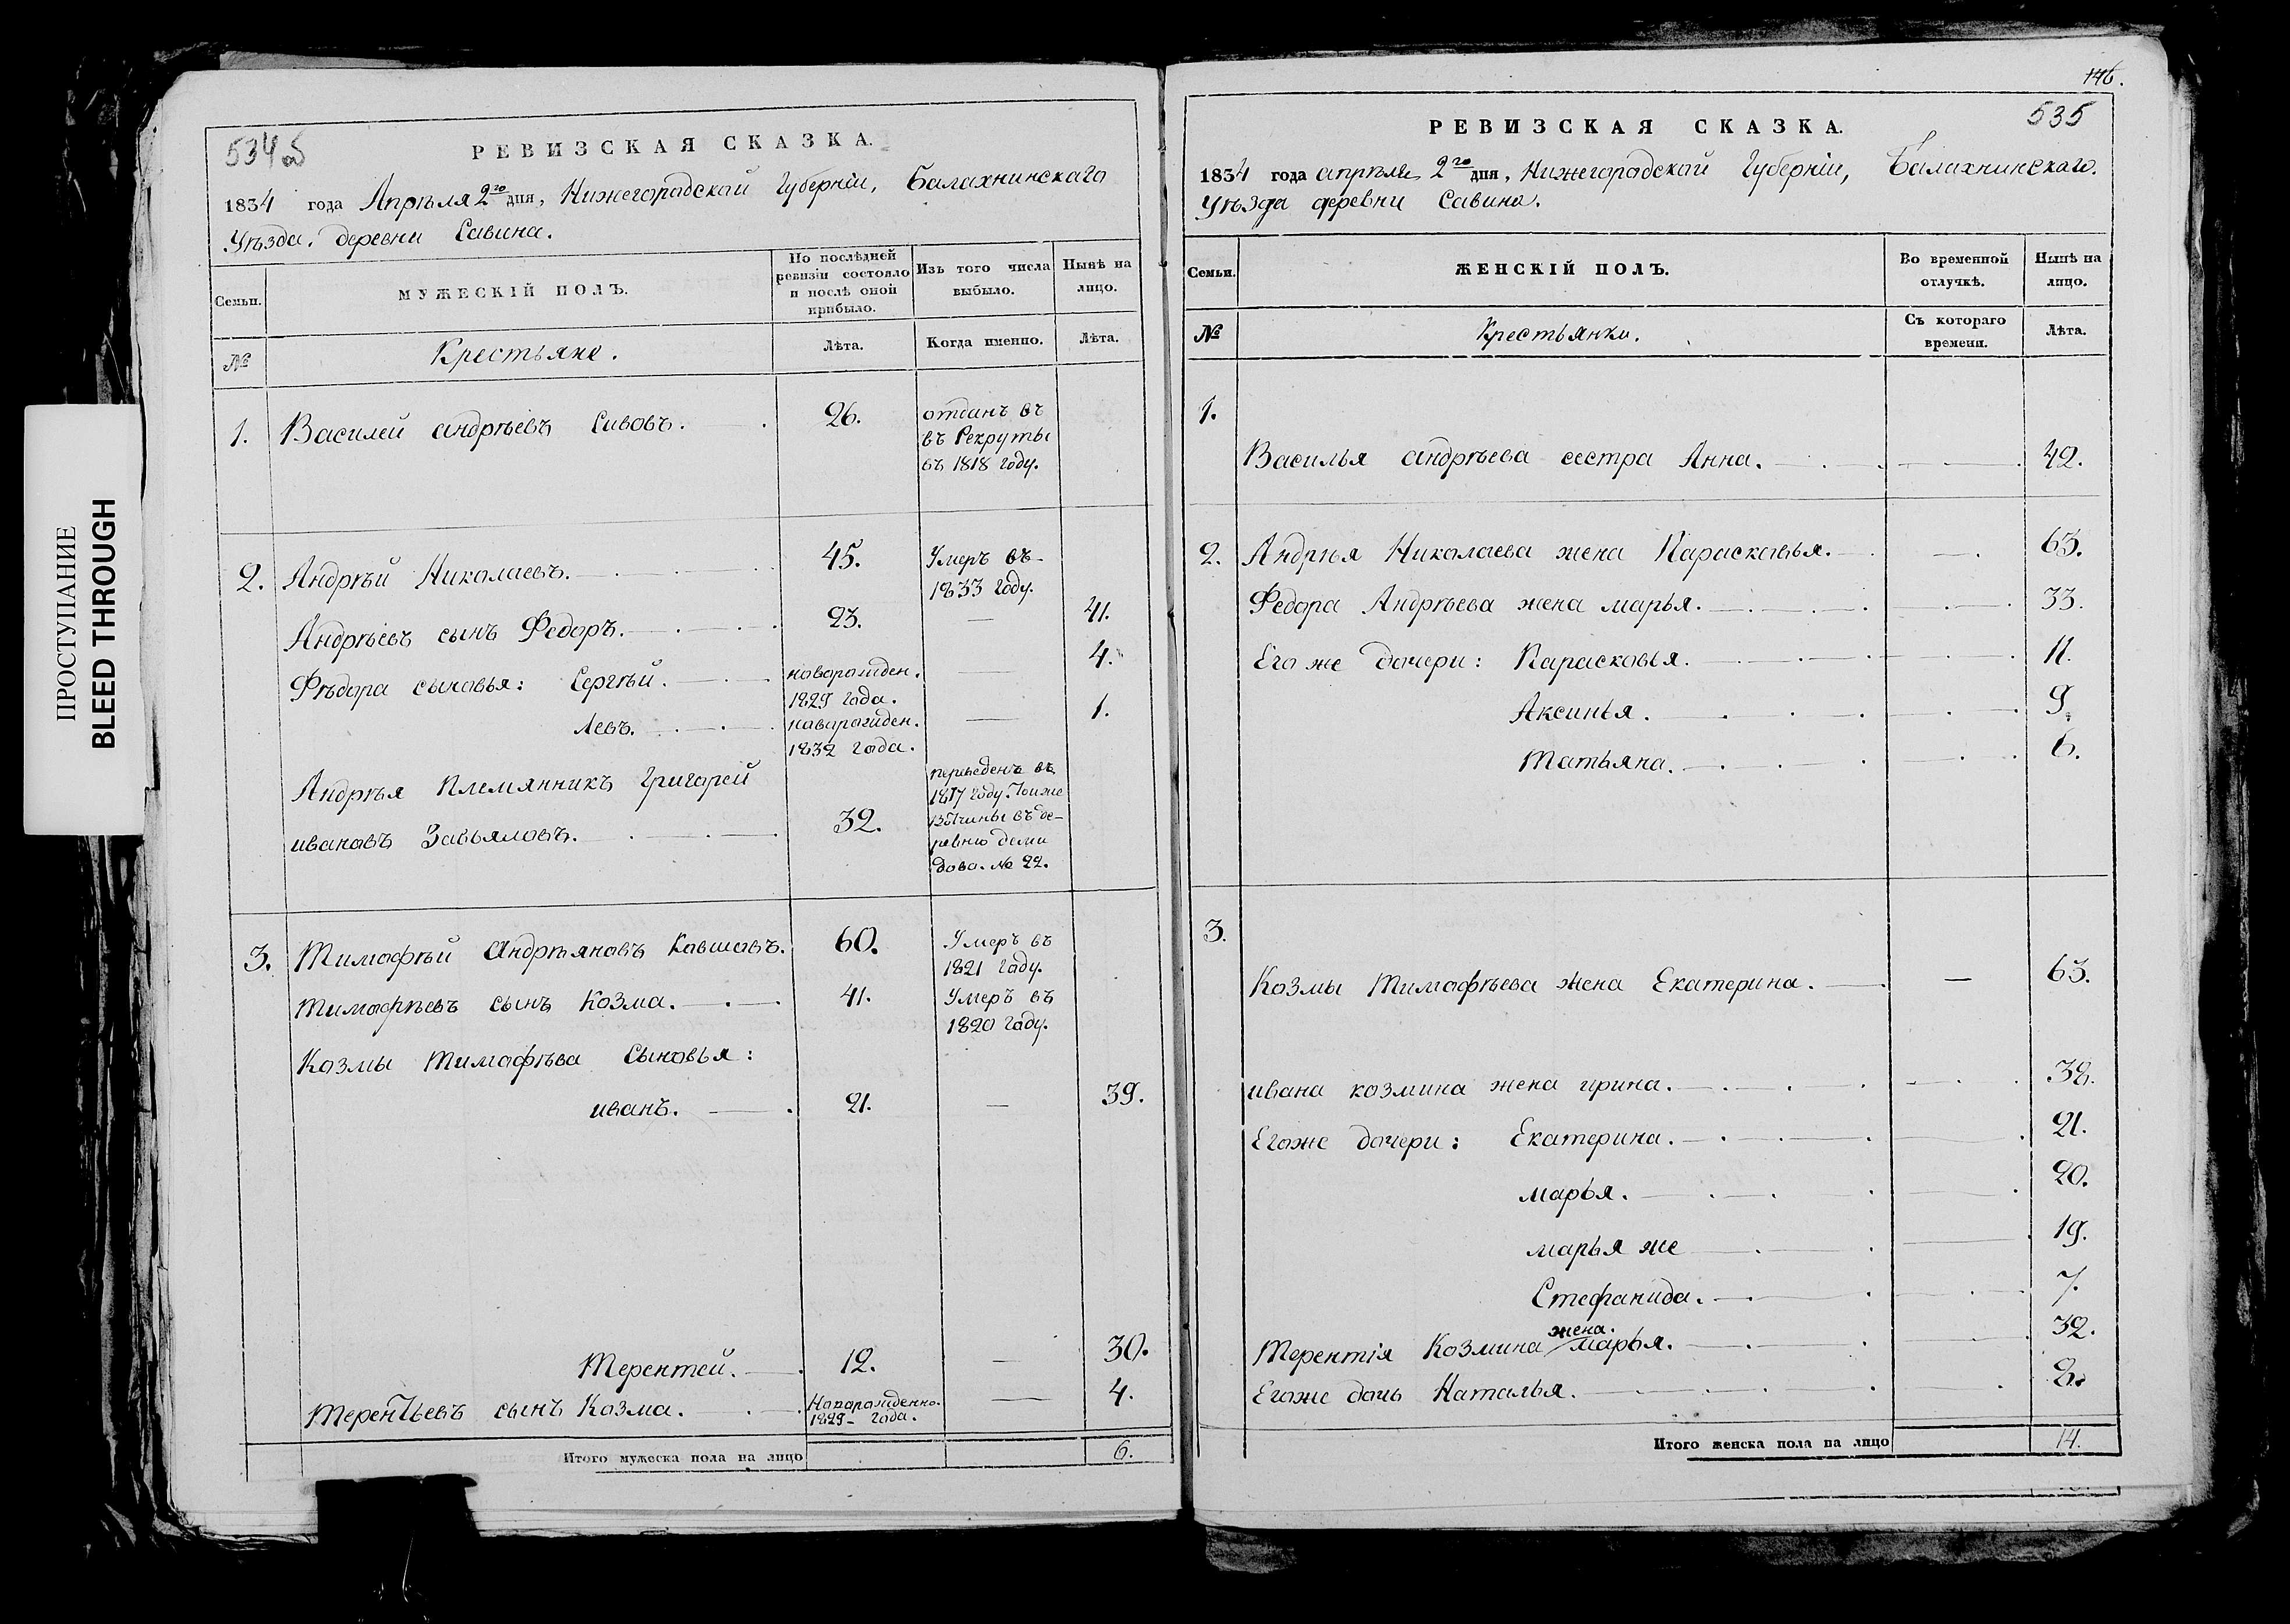 ПРОСТУПАНИЕ
BLEED THROUGH
534 об
РЕВИЗСКАЯ СКАЗКА.
1834 года Апрѣля 2го дня, Нижегородской Губерніи, Балахнинскаго
Уѣзда. деревни Савина.
Семьи.
МУЖЕСКІЙ ПОЛЪ.
По послѣдней ревизіи состояло и послѣ оной прибыло.
Изъ того числа выбыло.
Нынѣ на лицо.
№
Крестьяне.
Лѣта.
Когда именно.
Лѣта.
1. Василей андрѣевъ Сивовъ. 26. отданъ въ
въ Рекруты
въ 1818 году.
2. Андрѣй Николаевъ. 45. Умеръ въ
1833 году.
Андрѣевъ сынъ Федоръ. 23. — 41.
Фѣдора сыновья: Сергѣй. новорожден. — 4.
1829 года.
Левъ. новорожден. — 1.
1832 года.
Андрѣя Племянникъ Григорей
ивановъ Завьяловъ. 32.
переведенъ въ
1817 году. Тоиже
вотчины въ де-
ревню деми
дова. № 22.
3. Тимофѣй Андрѣяновъ Кавшовъ. 60. Умеръ въ
1821 году.
Тимофѣевъ сынъ Козма. 41. Умеръ въ
1820 году.
Козмы Тимофѣва Сыновья:
иванъ. 21. — 39.
Терентей. 12. — 30.
Терентьевъ сынъ Козма. Новорожденно. — 4.
1829 года.
Итого мужеска пола на лицо 6.
146.
535
РЕВИЗСКАЯ СКАЗКА.
1834 года апрѣля 2го дня, Нижегородской Губерніи, Балахнинскаго.
Уѣзда деревни Савина.
Семьи.
ЖЕНСКІЙ ПОЛЪ.
Во временной отлучкѣ.
Нынѣ на лицо.
№
Крестьянки.
Съ котораго времени.
Лѣта.
1.
Василья андрѣева сестра Анна. 42.
2. Андрѣя Николаева жена Парасковья. 63.
Федора Андрѣева жена марья. 33.
Его же дочери: Парасковья. 11.
Аксинья. 9.
Татьяна. 6.
3.
Козмы Тимофѣева жена Екатерина. — 63.
ивана козмина жена ирина. 38.
Егоже дочери: Екатерина. 21.
марья. 20.
марья же 19.
Стефанида. 7.
жена.
Терентія Козмина марья. 32.
Егоже дочь Наталья. 2.
Итого женска пола на лицо 14.